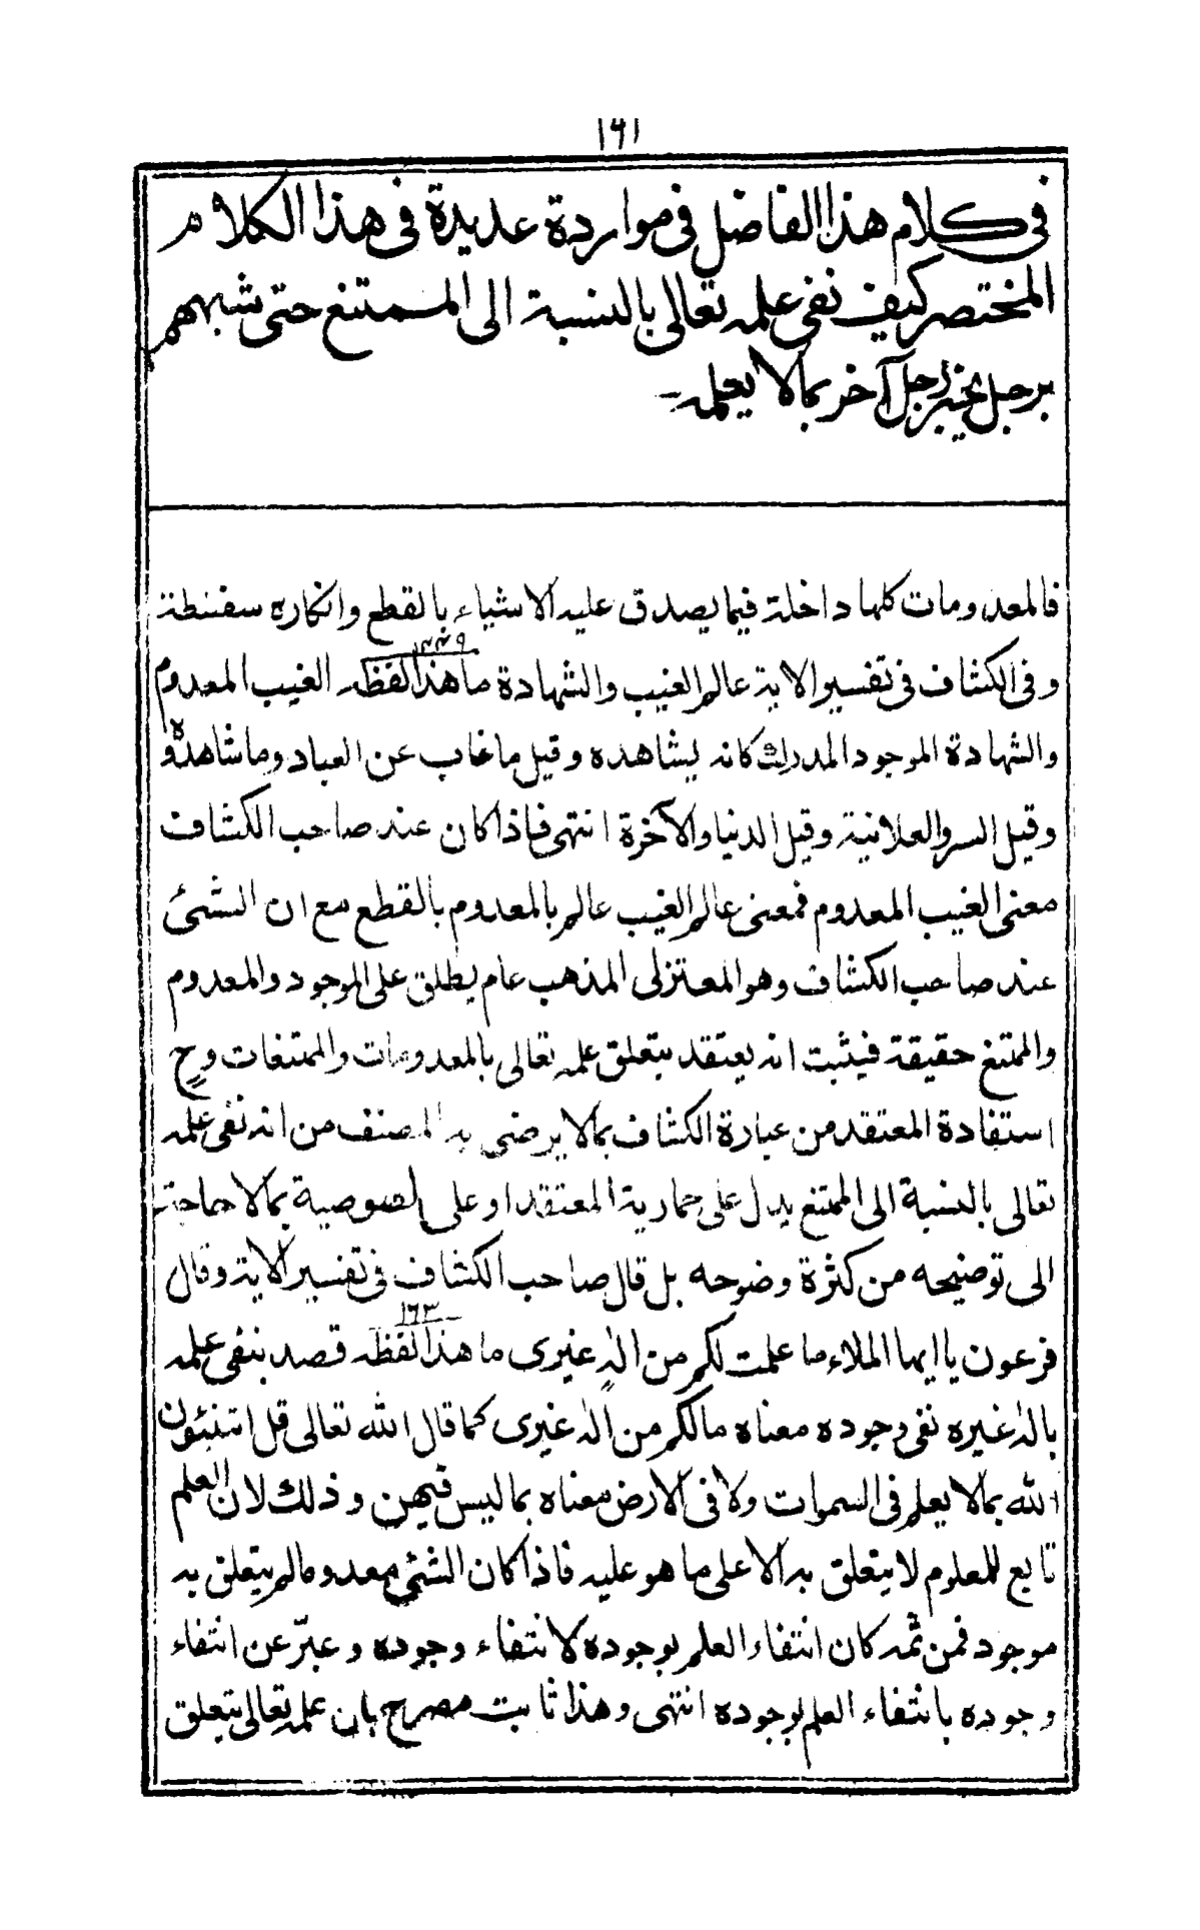 ١٦١
فی کلام هذا الفاضل فی مواردة عدیدة فی هذا الکلام
المختصر کیف نفی علمه تعالی بالنسبة الی الممتنع حتی شبههم
برجل یخبر رجل آخر بمالا یعلمه
فالمعدومات کلها داخلة فیما یصدق علیه الاشیاء بالقطع وانکاره سفسطة
وفی الکشاف فی تفسیر الایة عالم الغیب والشهادة ما هذا لفظه الغیب المعدوم
والشهادة الموجود المدرک کانه یشاهده وقیل ما غاب عن العباد وما شاهدوه
وقیل السر والعلانیة وقیل الدنیا والآخرة انتهی فاذا کان عند صاحب الکشاف
معنی الغیب المعدوم فمعنی عالم الغیب عالم بالمعدوم بالقطع مع ان الشئ
عند صاحب الکشاف وهو المعتزلی المذهب عام یطلق علی الموجود والمعدوم
والممتنع حقیقة فیثبت انه یعتقد بتعلق علمه تعالی بالمعدومات والممتنعات وح
استفادة المعتقد من عبارة الکشاف بمالا یرضی به المصنف من انه نفی علمه
تعالی بالنسبة الی الممتنع یدل علی حماریة المعتقد او علی لصوصیة بمالا حاجة
الی توضیحه من کثرة وضوحه بل قال صاحب الکشاف فی تفسیر الایة وقال
١٦٣
فرعون یا ایها الملاء ما علمت لکم من اله غیری ما هذا لفظه قصد بنفی علمه
باله غیره نفی وجوده معناه مالکم من اله غیری کما قال الله تعالی قل اتنبئون
الله بمالا یعلم فی السموات ولا فی الارض معناه بما لیس فیهن وذلک لان العلم
تابع للمعلوم لا یتعلق به الا علی ما هو علیه فاذا کان الشئ معدوما لم یتعلق به
موجود فمن ثمه کان انتفاء العلم بوجوده لانتفاء وجوده وعبّر عن انتفاء
وجوده بانتفاء العلم بوجوده انتهی وهذا ثابت مصرح بان علمه تعالی یتعلق